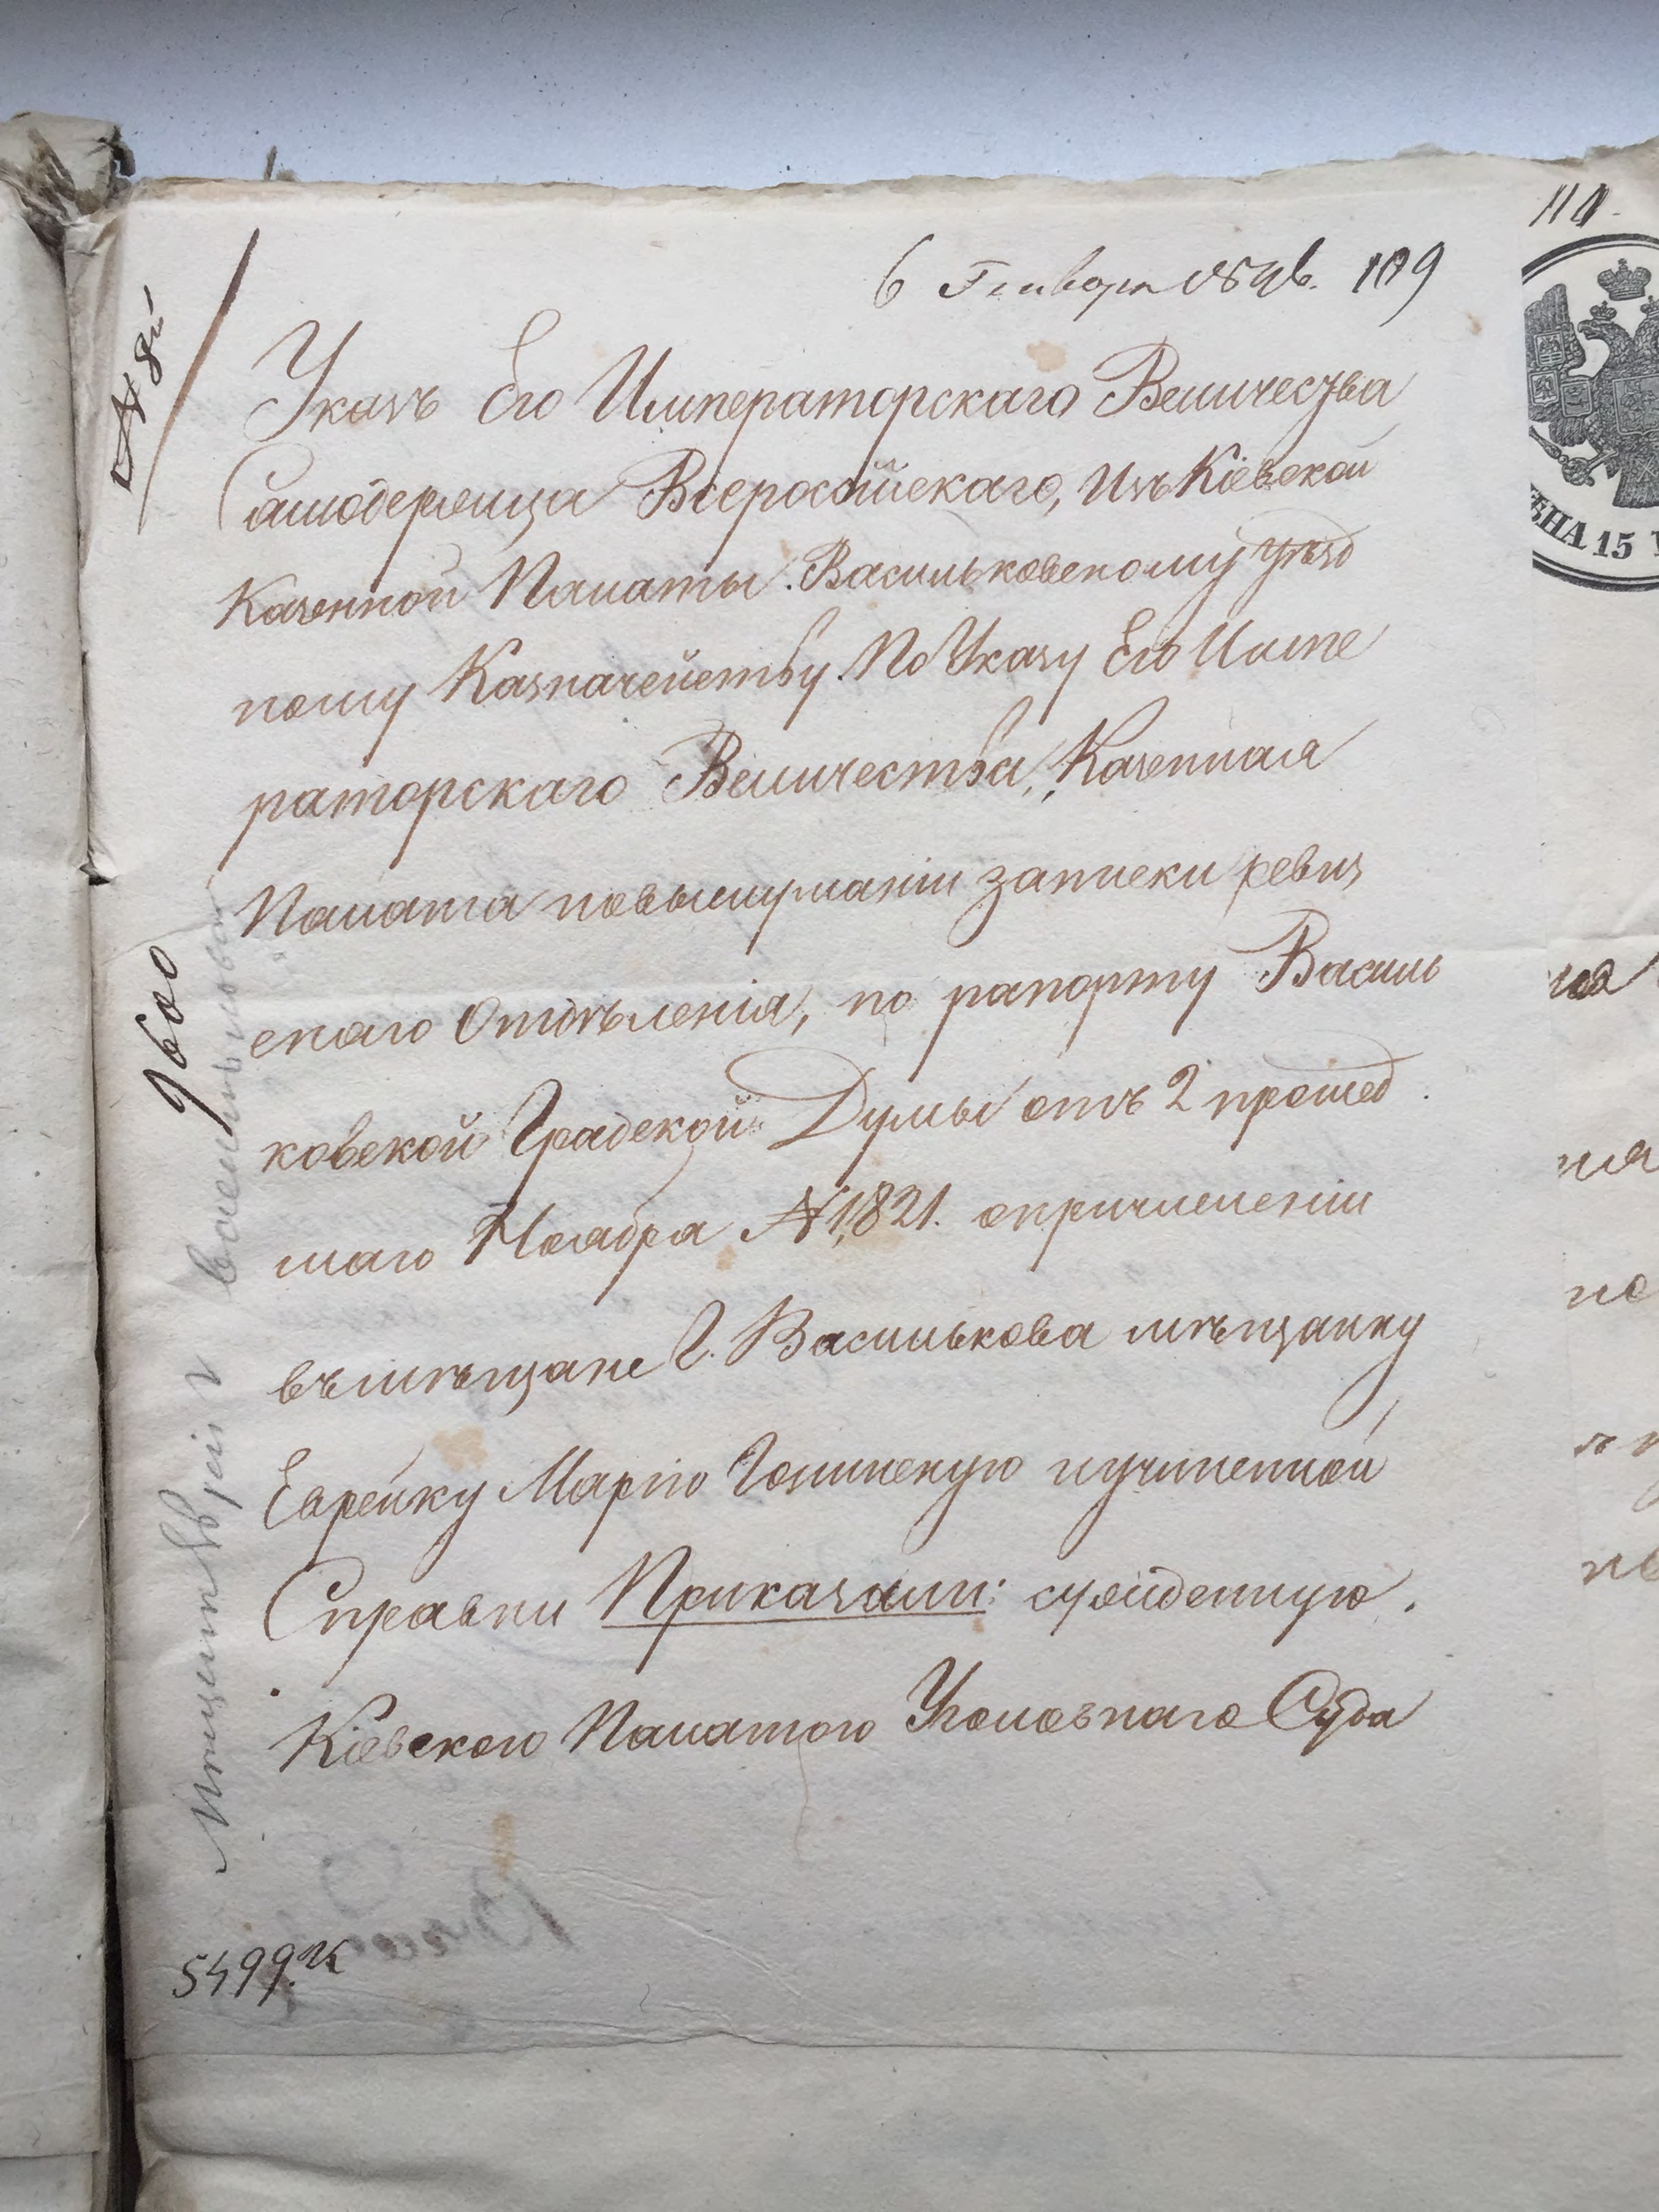 110.
6 Генваря 1846. 109
№ 8й
Указъ Его Императорскаго Величества
Самодержца Всеросійскаго, изъ Кіевской
Казенной Палаты. Васильковскому уѣзд
ному Казначейству. По Указу Его Импе
раторскаго Величества, Казенная
Палата повыслушаніи записки ревиз
скаго Отдѣленія, по рапорту Василь
ковской Градской Думы отъ 2 прошед
шаго Ноября № 1821. опричисленіи
въ мѣщане г. Василькова мѣщанку
Еврейку Марію Голинскую иучиненной
Справки Приказали: суждённую
Кіевскою Палатою Уголовнаго Суда
9600
5499.
ѢНА 15